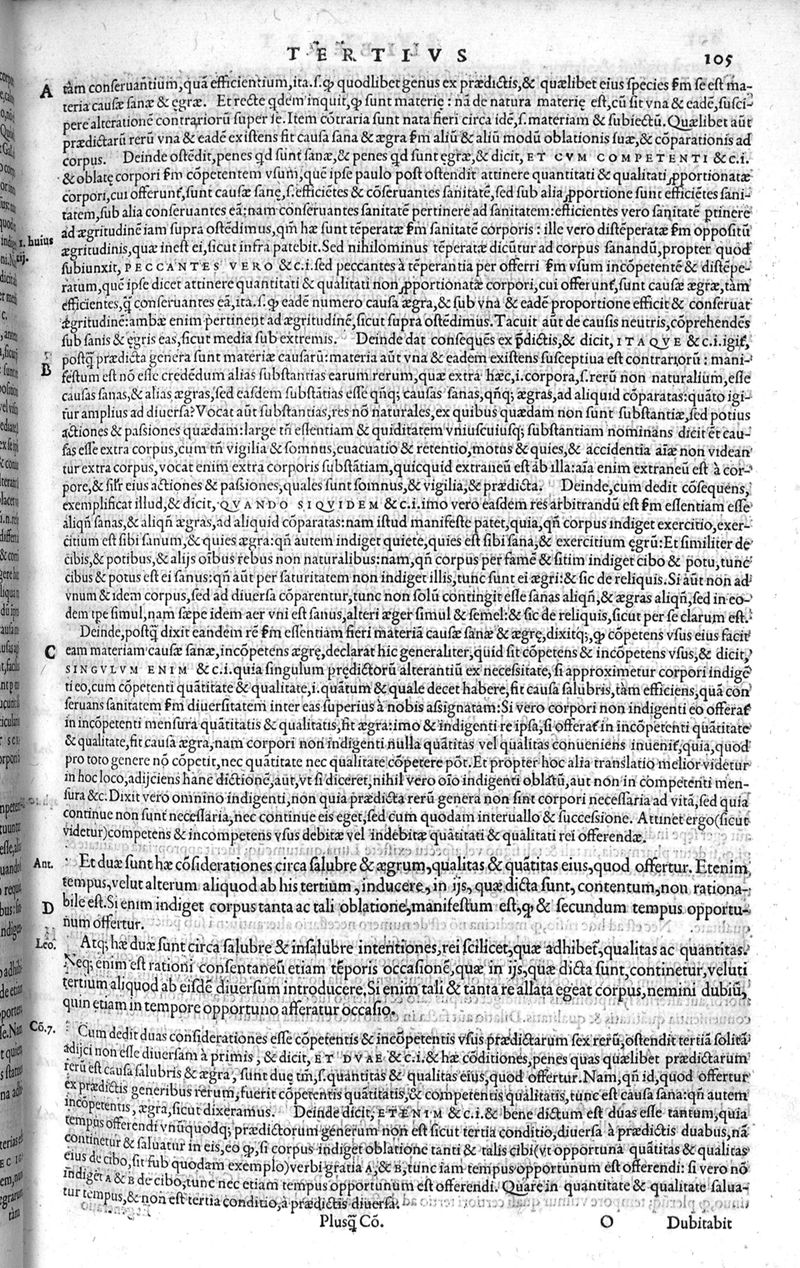 TERTIVS
105
A
tàm conseruantium,quã efficientium,ita.s.ꝙ quodlibet genus ex prædictis,& quælibet eius species ẜm se est ma-
teria causæ sanæ & ęgræ. Et recte qdem inquit,ꝙ sunt materię: nã de natura materię est,cũ sit vna & eadẽ,susci-
pere alterationẽ contrariorũ super se.Item cõtraria sunt nata fieri circa idẽ,s.materiam & subiectũ.Quælibet aũt
prædictarũ rerũ vna & eadẽ existens fit causa sana & ægra ẜm aliũ & aliũ modũ oblationis suæ,& cõparationis ad
corpus. Deinde ostẽdit,penes qd sunt sanæ,& penes qd sunt ęgræ,& dicit, ET CVM COMPETENTI & c.i.
& oblatę corpori ẜm cõpetentem vsum,quẽ ipse paulo post ostendit attinere quantitati & qualitati ꝓportionatæ
corpori,cui offerunt̃,sunt causæ sanę,s.efficiẽtes & cõseruantes sanitatẽ,sed sub alia ꝓportione sunt efficiẽtes sani-
tatem,sub alia conseruantes eã:nam conseruantes sanitatẽ pertinere ad sanitatem:efficientes vero sanitatẽ ptinere
ad ægritudinẽ iam supra ostẽdimus,qm̃ hæ sunt tẽperatæ ẜm sanitatẽ corporis : ille vero distẽperatæ ẜm oppositũ
1. huius
iij.
ægritudinis,quæ inest ei,sicut infra patebit.Sed nihilominus tẽperatæ dicũtur ad corpus sanandũ,propter quod
subiunxit, PECCANTES VERO & c.i.sed peccantes à tẽperantia per offerri ẜm vsum incõpetentẽ & distẽpe-
ratum,quẽ ipse dicet attinere quantitati & qualitati non ꝓportionatæ corpori,cui offerunt̃,sunt causæ ægræ,tàm
efficientes,q̃ conseruantes eã,ita.s.ꝙ eadẽ numero causa ægra,& sub vna & eadẽ proportione efficit & conseruat
ægritudinẽ:ambæ enim pertinent ad ægritudinẽ,sicut supra ostẽdimus.Tacuit aũt de causis neutris,cõprehendẽs
sub sanis & ęgris eas,sicut media sub extremis. Deinde dat consequẽs ex p̃dictis,& dicit, ITAQVE & c.i.igit̃,
B
postq̃ prædicta genera sunt materiæ causarũ:materia aũt vna & eadem existens susceptiua est contrariorũ : mani-
festum est nõ esse credẽdum alias substantias earum rerum,quæ extra hæc,i.corpora,s.rerũ non naturalium,esse
causas sanas,& alias ægras,sed easdem substãtias esse qñqꝫ causas sanas,qñqꝫ ægras,ad aliquid cõparatas:quãto igi-
tur amplius ad diuersa?Vocat aũt substantias,res nõ naturales,ex quibus quædam non sunt substantiæ,sed potius
actiones & passiones quædam:large tñ essentiam & quiditatem vniuscuiusqꝫ substantiam nominans dicit ẽt cau-
sas esse extra corpus,cum tñ vigilia & somnus,euacuatio & retentio,motus & quies,& accidentia aĩæ non videan
tur extra corpus,vocat enim extra corporis substãtiam,quicquid extraneũ est ab illa:aĩa enim extraneũ est à cor-
pore,& sil̃r eius actiones & passiones,quales sunt somnus,& vigilia,& prædicta. Deinde,cum dedit cõsequens,
exemplificat illud,& dicit, QVANDO SIQVIDEM & c.i.imo vero easdem res arbitrandũ est ẜm essentiam esse
aliqñ sanas,& aliqñ ægras,ad aliquid cõparatas:nam istud manifeste patet,quia,qñ corpus indiget exercitio,exer-
citium est sibi sanum,& quies ægra:qñ autem indiget quiete,quies est sibi sana,& exercitium ęgrũ:Et similiter de
cibis,& potibus,& alijs oĩbus rebus non naturalibus:nam,qñ corpus per famẽ & sitim indiget cibo & potu,tunc
cibus & potus est ei sanus:qñ aũt per saturitatem non indiget illis,tunc sunt ei ægri:& sic de reliquis.Si aũt non ad
vnum & idem corpus,sed ad diuersa cõparentur,tunc non solũ contingit esse sanas aliqñ,& ægras aliqñ,sed in eo-
dem tpe simul,nam sæpe idem aer vni est sanus,alteri æger simul & semel:& sic de reliquis,sicut per se clarum est.
Deinde,postq̃ dixit eandẽm rẽ ẜm essentiam fieri materiã causæ sanæ & ægrę,dixitqꝫ,ꝙ cõpetens vsus eius facit
C
eam materiam causæ sanæ,incõpetens ægrę,declarat hic generaliter,quid sit cõpetens & incõpetens vsus,& dicit,
SINGVLVM ENIM & c.i.quia singulum prędictorũ alterantiũ ex necessitate,si approximetur corpori indigẽ
ti eo,cum cõpetenti quãtitate & qualitate,i.quãtum & quale decet habere,fit causa salubris,tàm efficiens,quã con
seruans sanitatem ẜm diuersitatem inter eas superius à nobis assignatam:Si vero corpori non indigenti eo offerat̃
in incõpetenti mensura quãtitatis & qualitatis,fit ægra:imo & indigenti re ipsa,si offerat̃ in incõpetenti quãtitate
& qualitate,fit causa ægra,nam corpori non indigenti nulla quãtitas vel qualitas conueniens inuenit̃,quia,quod
pro toto genere nõ cõpetit,nec quãtitate nec qualitate cõpetere põt.Et propter hoc alia translatio melior videtur
in hoc loco,adijciens hanc dictionẽ,aut,vt si diceret,nihil vero oĩo indigenti oblatũ,aut non in competenti men-
sura &c.Dixit vero omnino indigenti,non quia prædicta rerũ genera non sint corpori necessaria ad vitã,sed quia
continue non sunt necessaria,nec continue eis eget,sed cum quodam interuallo & successione. Attinet ergo(sicut
videtur)competens & incompetens vsus debitæ vel indebitæ quãtitati & qualitati rei offerendæ.
Ant.
Et duæ sunt hæ cõsiderationes circa salubre & ægrum,qualitas & quãtitas eius,quod offertur. Etenim,
tempus,velut alterum aliquod ab his tertium,inducere,in ijs,quæ dicta sunt,contentum,non rationa-
D
bile est.Si enim indiget corpus tanta ac tali oblatione,manifestum est,ꝙ & secundum tempus opportu-
num offertur.
Leo.
Atqꝫ hæ duæ sunt circa salubre & insalubre intentiones,rei scilicet,quæ adhibet̃,qualitas ac quantitas.
Neqꝫ enim est rationi consentaneũ etiam tẽporis occasionẽ,quæ in ijs,quæ dicta sunt,continetur,veluti
tertium aliquod ab eisdẽ diuersum introducere,Si enim tali & tanta re allata egeat corpus,nemini dubiũ,
quin etiam in tempore opportuno afferatur occasio.
Cõ.7.
Cum dedit duas considerationes esse cõpetentis & incõpetentis vsus prædictarum sex rerũ,ostendit tertiã solitã
adijci non esse diuersam à primis, & dicit, ET DVAE & c.i.& hæ cõditiones,penes quas quælibet prædictarum
rerũ est causa salubris & ægra, sunt duę tm̃,s.quantitas & qualitas eius,quod offertur.Nam,qñ id,quod offertur
ex prædictis generibus rerum,fuerit cõpetentis quãtitatis,& competentis qualitatis,tunc est causa sana:qñ autem
incõpetentis, ægra,sicut dixeramus. Deinde dicit, ETENIM & c.i.& bene dictum est duas esse tantum,quia
tempus offerendi vnũquodqꝫ prædictorum generum non est sicut tertia conditio,diuersa à prædictis duabus,nã
continetur & saluatur in eis,eo ꝙ,si corpus indiget oblatione tanti & talis cibi(vt opportuna quãtitas & qualitas
eius de cibo,sit sub quodam exemplo)verbi gratia A,& B,tunc iam tempus opportunum est offerendi: si vero nõ
indiget A & B de cibo,tunc nec etiam tempus opportunum est offerendi. Quare in quantitate & qualitate salua-
tur tempus,& non est tertia conditio,à prædictis diuersa.
Plusq̃ Cõ. O Dubitabit